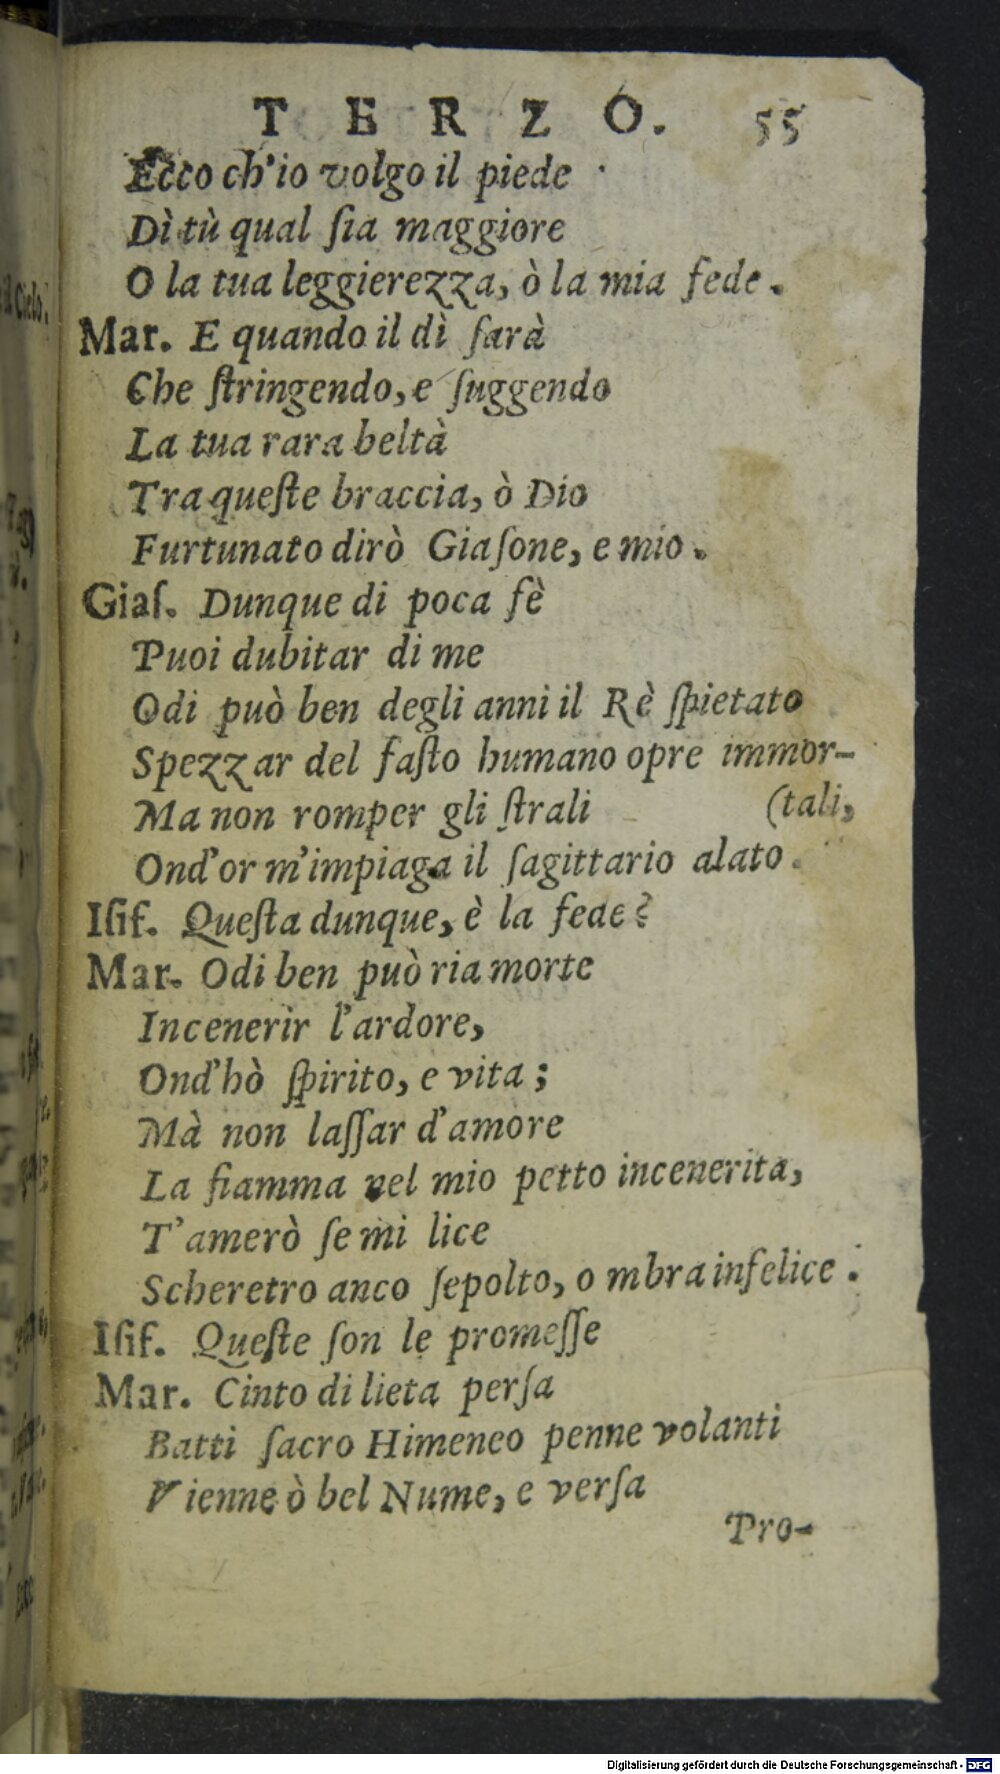 TERZO. 55
Ecco ch'io volgo il piede
Dì tù qual ſia maggiore
O la tua leggierezza, ò la mia fede.
Mar. E quando il dì ſarà
Che ſtringendo, e ſuggendo
La tua rara beltà
Tra queſte braccia, ò Dio
Furtunato dirò Giaſone, e mio.
Giaſ. Dunque di poca fè
Puoi dubitar di me
Odi può ben degli anni il Rè ſpietato
Spezzar del faſto humano opre immor-
Ma non romper gli ſtrali (tali,
Ond'or m'impiaga il ſagittario alato.
Iſif. Queſta dunque, è la fede?
Mar. Odi ben può ria morte
Incenerir l'ardore,
Ond'hò ſpirito, e vita;
Mà non laſſar d'amore
La fiamma nel mio petto incenerita,
T'amerò ſe mi lice
Scheretro anco ſepolto, o mbra infelice.
Iſif. Queſte ſon le promeſſe
Mar. Cinto di lieta perſa
Batti ſacro Himeneo penne volanti
Vienne ò bel Nume, e verſa
Pro-
Digitalisierung gefördert durch die Deutsche Forschungsgemeinschaft - DFG